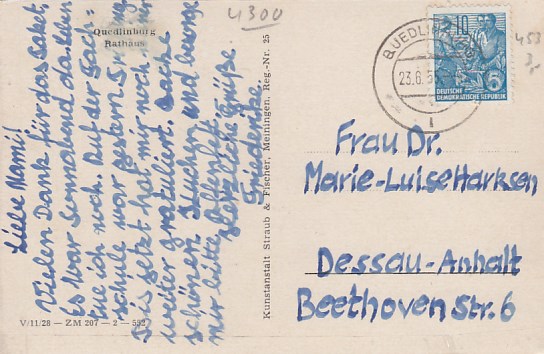 4300
Quedlinburg
Rathaus
Liebe Mami!
Vielen Dank für das Paket.
Es war Sonnabend da. Eben
tue ich noch. Auf der Fach-
schule war gestern
Bis jetzt hat mir noch
weiter gratuliert. Backe
schönen Kuchen und besorge
mir bitte
Herzliche Grüße
Friederike
V/11/28 — ZM 207 — 2 — 552
Kunstanstalt Straub & Fischer, Meiningen. Reg.-Nr. 25
QUEDLINBURG
23.6.5
1
10
5
DEUTSCHE
DEMOKRATISCHE REPUBLIK
453
3,-
Frau Dr.
Marie-Luise Harksen
Dessau-Anhalt
Beethoven Str. 6